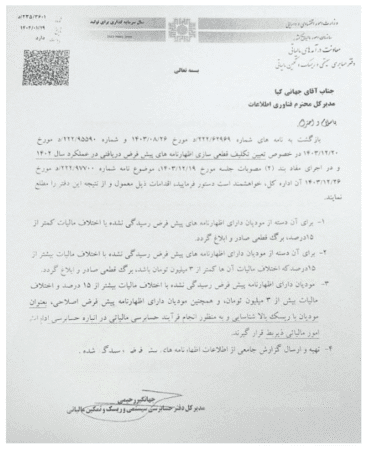 سال سرمایه گذاری برای تولید
معاونت درآمدهای مالیاتی
بسمه تعالی
جناب آقای جهانی کیا
مدیر کل محترم فناوری اطلاعات
با سلام و احترام
بازگشت به نامه های شماره ۲۲۲/۶۲۹۶۹/د مورخ ۱۴۰۳/۰۸/۲۶ و شماره ۲۲۲/۹۵۵۹۰/د مورخ
۱۴۰۳/۱۲/۲۰ در خصوص تعیین تکلیف قطعی سازی اظهارنامه های پیش فرض دریافتی در عملکرد سال ۱۴۰۲
و در اجرای مفاد بند (۲) مصوبات جلسه مورخ ۱۴۰۳/۱۲/۱۹، موضوع نامه شماره ۲۲۲/۹۷۷۰۰/د مورخ
۱۴۰۳/۱۲/۲۶ آن اداره کل، خواهشمند است دستور فرمایید، اقدامات ذیل معمول و از نتیجه این دفتر را مطلع
نمایند.
۱- برای آن دسته از مودیان دارای اظهارنامه های پیش فرض رسیدگی نشده با اختلاف مالیات کمتر از
۱۵درصد، برگ قطعی صادر و ابلاغ گردد.
۲- برای آن دسته از مودیان دارای اظهارنامه های پیش فرض رسیدگی نشده با اختلاف مالیات بیشتر از
۱۵درصدکه اختلاف مالیات آن ها کمتر از ۳ میلیون تومان باشد، برگ قطعی صادر و ابلاغ گردد.
۳- مودیان دارای اظهارنامه پیش فرض رسیدگی نشده با اختلاف مالیات بیشتر از ۱۵ درصد و اختلاف
مالیات بیش از ۳ میلیون تومان، و همچنین مودیان دارای اظهارنامه پیش فرض اصلاحی، بعنوان
مودیان با ریسک بالا شناسایی و به منظور انجام فرآیند حسابرسی مالیاتی در انباره حسابرسی ادارات
امور مالیاتی ذیربط قرار گیرند.
۴- تهیه و ارسال گزارش جامعی از اطلاعات اظهارنامه های پیش فرض رسیدگی شده.
جهانگیر رحیمی
مدیر کل دفتر حسابرسی سیستمی و ریسک و تمکین مالیاتی